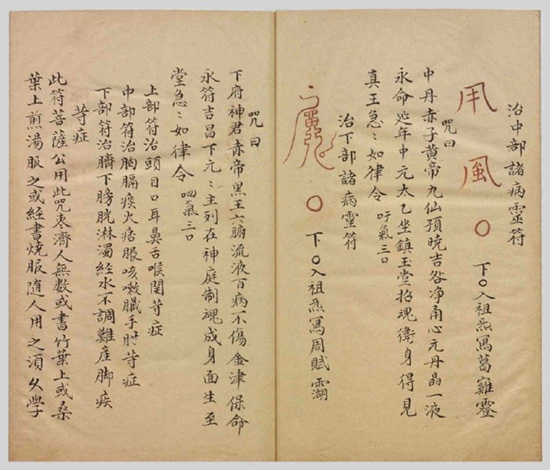 治中部諸病靈符
用風〇 下〇入祖炁寫葛雞靈
咒曰
中丹赤子黄帝九仙預曉吉咎净甬心元丹晶一液
永命延年中元太乙坐鎮玉堂招魂衛身得見
真王急〻如律令 吁氣三口
治下部諸病靈符
〇 下〇入祖炁寫周賦湖
咒曰
下府神君赤帝黑王六腑流液百病不傷金津保命
永符吉昌下元〻主列在神庭制魂成身面生至
堂急〻如律令 呬氣三口
上部符治頭目口耳鼻舌喉関等症
中部符治胸膈痰火痞服咳嗽臟手肘等症
下部符治臍下膀胱淋濁經水不調難産脚疾
等症
此符菩薩公用此咒枣濟人無数或書竹葉上或桑
葉上煎湯服之或經書燒服隨人用之須久學